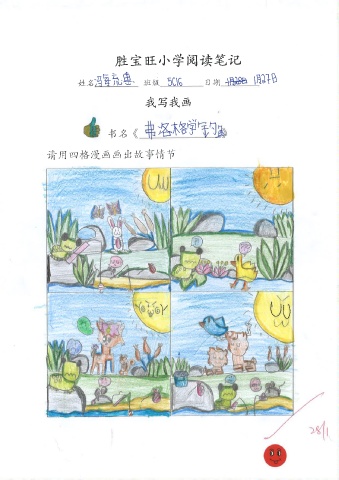 胜宝旺小学阅读笔记
姓名 班级 5C16 日期 1月27日
我写我画
书名《弗洛格学钓鱼》
请用四格漫画画出故事情节
28/1